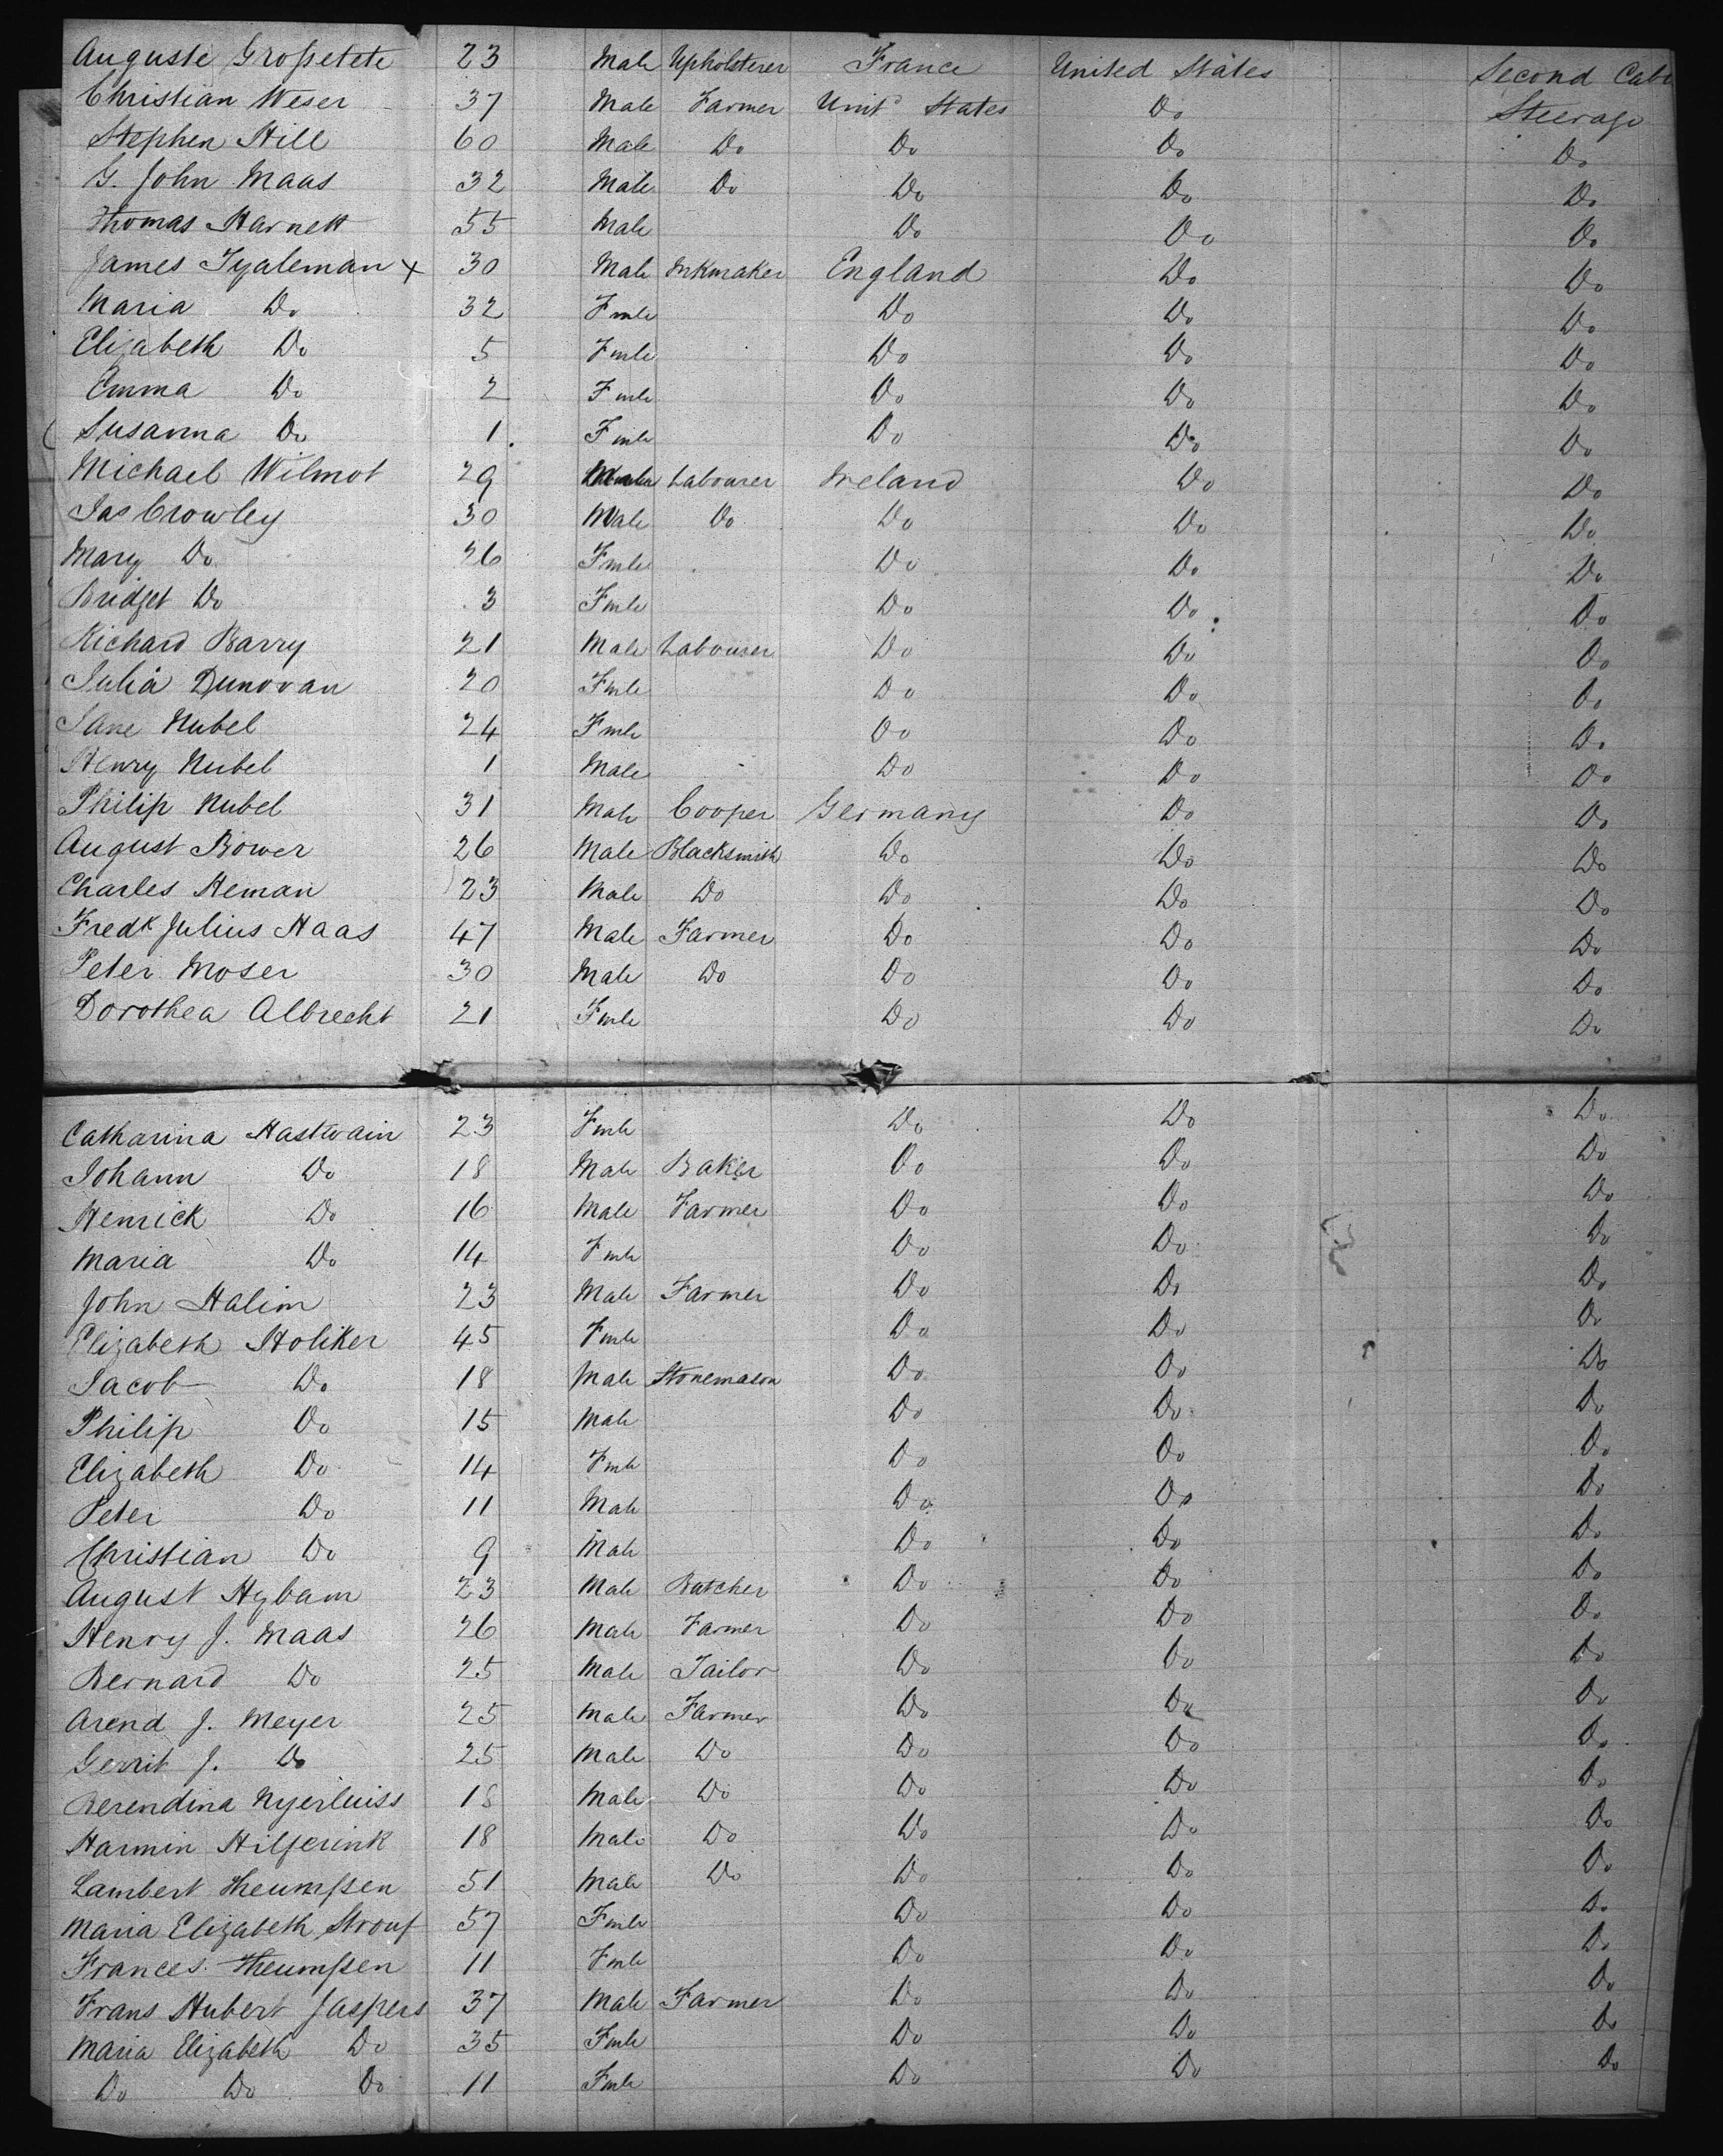 Auguste Großetete 23 Male Upholsterer France United States Second Cabi
Christian Weser 37 Male Farmer Unitd States Do Steerage
Stephen Hill 60 Male Do Do Do Do
G. John Maas 32 Male Do Do Do Do
Thomas Harnett 55 Male Do Do Do
James Tyaleman x 30 Male Inkmaker England Do Do
Maria Do 32 Fmle Do Do Do
Elizabeth Do 5 Fmle Do Do Do
Emma Do 2 Fmle Do Do Do
Susanna Do 1 Fmle Do Do Do
Michael Wilmot 29 Male Labourer Ireland Do Do
Jas Crowley 30 Male Do Do Do Do
Mary Do 26 Fmle Do Do Do
Bridget Do 3 Fmle Do Do Do
Richard Barry 21 Male Labourer Do Do Do
Julia Dunovan 20 Fmle Do Do Do
Jane Nubel 24 Fmle Do Do Do
Henry Nubel 1 Male Do Do Do
Philip Nubel 31 Male Cooper Germany Do Do
August Bower 26 Male Blacksmith Do Do Do
Charles Heman 23 Male Do Do Do Do
Fredk Julius Haas 47 Male Farmer Do Do Do
Peter Moser 30 Male Do Do Do Do
Dorothea Albrecht 21 Fmle Do Do Do
Catharina Hastwain 23 Fmle Do Do Do
Johann Do 18 Male Baker Do Do Do
Henrick Do 16 Male Farmer Do Do Do
Maria Do 14 Fmle Do Do Do
John Halim 23 Male Farmer Do Do Do
Elizabeth Holiker 45 Fmle Do Do Do
Jacob Do 18 Male Stonemason Do Do Do
Philip Do 15 Male Do Do Do
Elizabeth Do 14 Fmle Do Do Do
Peter Do 11 Male Do Do Do
Christian Do 9 Male Do Do Do
August Hybam 23 Male Butcher Do Do Do
Henry J. Maas 26 Male Farmer Do Do Do
Bernard Do 25 Male Tailor Do Do Do
Arend J. Meyer 25 Male Farmer Do Do Do
Gerrit J. Do 25 Male Do Do Do Do
Berendina Nyerluiss 18 Male Do Do Do Do
Harmin Hilferink 18 Male Do Do Do Do
Lambert Theumßen 51 Male Do Do Do Do
Maria Elizabeth Strouf 57 Fmle Do Do Do
Frances Theumßen 11 Fmle Do Do Do
Frans Hubert Jaspers 37 Male Farmer Do Do Do
Maria Elizabeth Do 35 Fmle Do Do Do
Do Do Do 11 Fmle Do Do Do